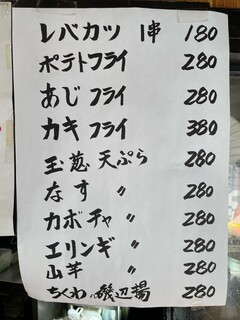 レバカツ 1串 180
ポテトフライ 280
あじフライ 280
カキフライ 380
玉葱天ぷら 280
なす 〃 280
カボチャ 〃 280
エリンギ 〃 280
山芋 〃 280
ちくわ磯辺揚 280